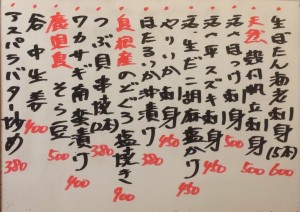 生ぼたん海老刺身(5本) 600
天然 殻付帆立刺身 500
活〆ほっけ刺身 500
活〆平スズキ刺身 450
活〆生だこ胡麻塩かけ 450
やりいか刺身 450
ほたるいか沖漬け 380
島根産のどぐろ塩焼き 900
つぶ貝串焼(2本) 380
ワカサギ南蛮漬け 400
鹿児島 そら豆 500
谷中生姜 400
アスパラバター炒め 380